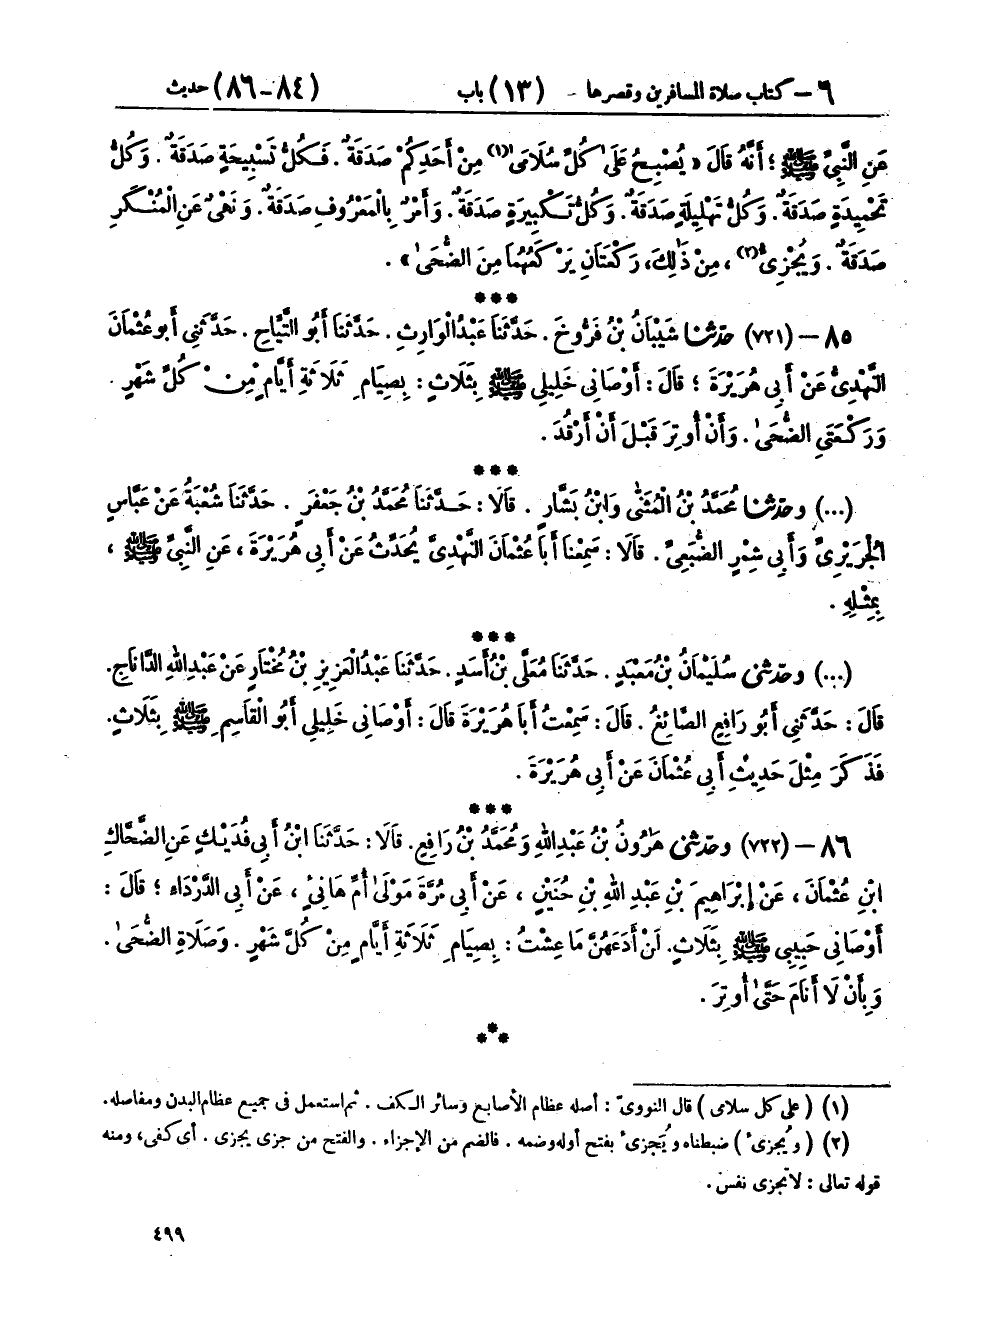 ٦ – كتاب صلاة المسافرين وقصرها – (١٣) باب (٨٤–٨٦) حديث
عَنِ النَّبِيِّ ﷺ؛ أَنَّهُ قَالَ « يُصْبِحُ عَلَىٰ كُلِّ سُلَامَىٰ(١) مِنْ أَحَدِكُمْ صَدَقَةٌ . فَكُلُّ تَسْبِيحَةٍ صَدَقَةٌ . وَكُلُّ
تَحْمِيدَةٍ صَدَقَةٌ . وَكُلُّ تَهْلِيلَةٍ صَدَقَةٌ . وَكُلُّ تَكْبِيرَةٍ صَدَقَةٌ . وَأَمْرٌ بِالْمَعْرُوفِ صَدَقَةٌ . وَنَهْىٌ عَنِ الْمُنْكَرِ
صَدَقَةٌ . وَيُجْزِئُ(٢)، مِنْ ذَٰلِكَ، رَكْعَتَانِ يَرْكَعُهُمَا مِنَ الضُّحَىٰ » .
***
٨٥ – (٧٢١) حدّثنا شَيْبَانُ بْنُ فَرُّوخَ . حَدَّثَنَا عَبْدُ الْوَارِثِ . حَدَّثَنَا أَبُو التَّيَّاحِ . حَدَّثَنِي أَبُو عُثْمَانَ
النَّهْدِىُّ عَنْ أَبِى هُرَيْرَةَ ؛ قَالَ : أَوْصَانِى خَلِيلِى ﷺ بِثَلَاثٍ : بِصِيَامِ ثَلَاثَةِ أَيَّامٍ مِنْ كُلِّ شَهْرٍ .
وَرَكْعَتَىِ الضُّحَىٰ . وَأَنْ أُوتِرَ قَبْلَ أَنْ أَرْقُدَ .
***
(...) وحدّثنا مُحَمَّدُ بْنُ الْمُثَنَّىٰ وَابْنُ بَشَّارٍ . قَالَا : حَدَّثَنَا مُحَمَّدُ بْنُ جَعْفَرٍ . حَدَّثَنَا شُعْبَةُ عَنْ عَبَّاسٍ
الْجُرَيْرِىِّ وَأَبِى شِمْرٍ الضُّبَعِىِّ . قَالَا : سَمِعْنَا أَبَا عُثْمَانَ النَّهْدِىَّ يُحَدِّثُ عَنْ أَبِى هُرَيْرَةَ ، عَنِ النَّبِىِّ ﷺ ،
بِمِثْلِهِ .
***
(...) وحدّثنى سُلَيْمَانُ بْنُ مَعْبَدٍ . حَدَّثَنَا مُعَلَّى بْنُ أَسَدٍ . حَدَّثَنَا عَبْدُ الْعَزِيزِ بْنُ مُخْتَارٍ عَنْ عَبْدِ اللهِ الدَّانَاجِ.
قَالَ : حَدَّثَنِى أَبُو رَافِعٍ الصَّائِغُ . قَالَ : سَمِعْتُ أَبَا هُرَيْرَةَ قَالَ : أَوْصَانِى خَلِيلِى أَبُو الْقَاسِمِ ﷺ بِثَلَاثٍ.
فَذَكَرَ مِثْلَ حَدِيثِ أَبِى عُثْمَانَ عَنْ أَبِى هُرَيْرَةَ .
***
٨٦ – (٧٢٢) وحدّثنى هَٰرُونُ بْنُ عَبْدِ اللهِ وَمُحَمَّدُ بْنُ رَافِعٍ. قَالَا : حَدَّثَنَا ابْنُ أَبِى فُدَيْكٍ عَنِ الضَّحَّاكِ
ابْنِ عُثْمَانَ ، عَنْ إِبْرَاهِيمَ بْنِ عَبْدِ اللهِ بْنِ حُنَيْنٍ ، عَنْ أَبِى مُرَّةَ مَوْلَىٰ أُمِّ هَانِئٍ ، عَنْ أَبِى الدَّرْدَاءِ ؛ قَالَ :
أَوْصَانِى حَبِيبِى ﷺ بِثَلَاثٍ. لَنْ أَدَعَهُنَّ مَا عِشْتُ : بِصِيَامِ ثَلَاثَةِ أَيَّامٍ مِنْ كُلِّ شَهْرٍ . وَصَلَاةِ الضُّحَىٰ .
وَبِأَنْ لَا أَنَامَ حَتَّىٰ أُوتِرَ .
***
(١) ( على كل سلامى ) قال النووىّ : أصله عظام الأصابع وسائر الكف . ثم استعمل فى جميع عظام البدن ومفاصله.
(٢) ( ويُجزى ) ضبطناه ويُجزى بفتح أوله وضمه . فالضم من الإجزاء . والفتح من جزى يجزى . أى كفى، ومنه
قوله تعالى : لا تجزى نفس .
٤٩٩